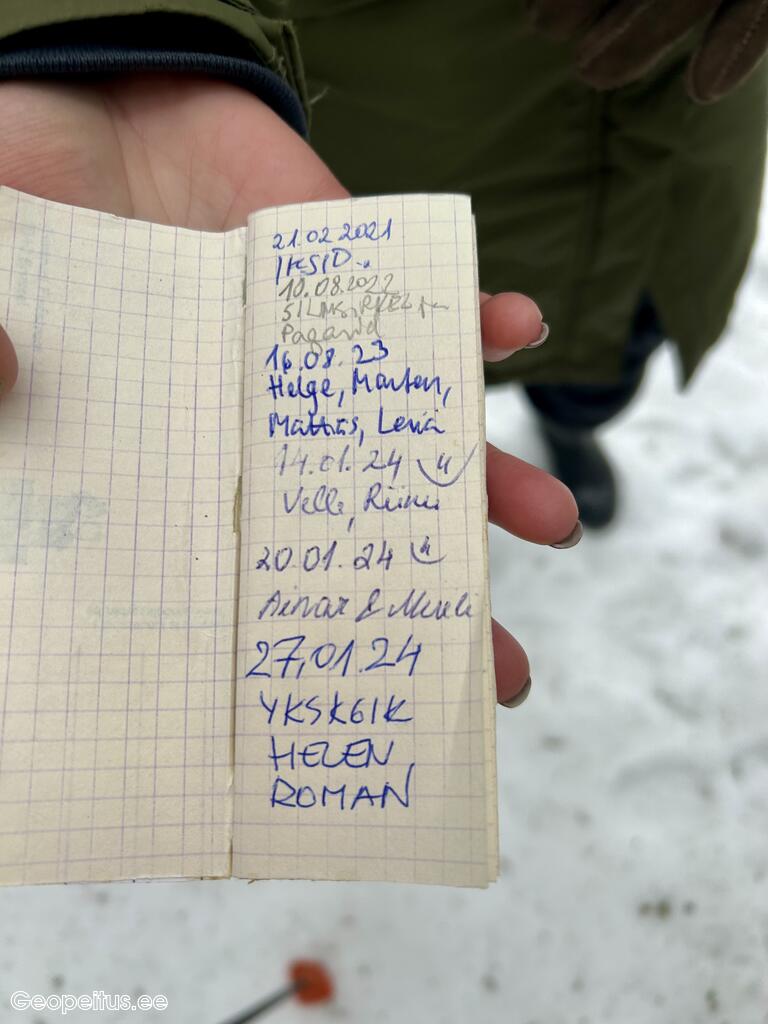 21.02 2021
IKSID..
10.08.2022
Paganid
16.08.23
Helge, Marten,
Mattias, Lenna
14.01.24
Velle, Riinu
20.01.24
Ainar & Meeli
27,01.24
YKSKÕIK
HELEN,
ROMAN
Geopeitus.ee